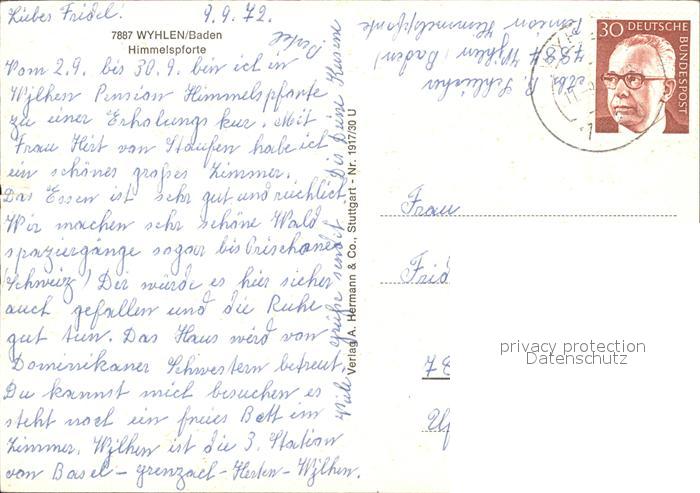 Liebes Fridel! 9.9.72.
7887 WYHLEN/Baden
Himmelspforte
Vom 2.9. bis 30.9. bin ich in
Wÿlhen Pension Himmelspforte
zu einer Erholungs kur. Mit
Frau Hirt von Staufen habe ich
ein schönes großes Zimmer.
Das Essen ist sehr gut und reichlich.
Wir machen sehr schöne Wald
spaziergänge sogar bis
Schweiz! Dir würde es hier sicher
auch gefallen und die Ruhe
gut tun. Das Haus wird von
Dominikaner Schwestern betreut.
Du kannst mich besuchen es
steht noch ein freies Bett im
Zimmer. Wÿlhen ist die 3. Station
von Basel – grenzach – Herten – Wÿlhen.
Viele grüße sendet Dir Deine
Verlag A. Hermann & Co., Stuttgart - Nr. 1917/30 U
Abs.
7887 Wyhlen (Baden)
Pension Himmelspforte
30 DEUTSCHE
BUNDESPOST
Frau
Frid
78
privacy protection
Datenschutz